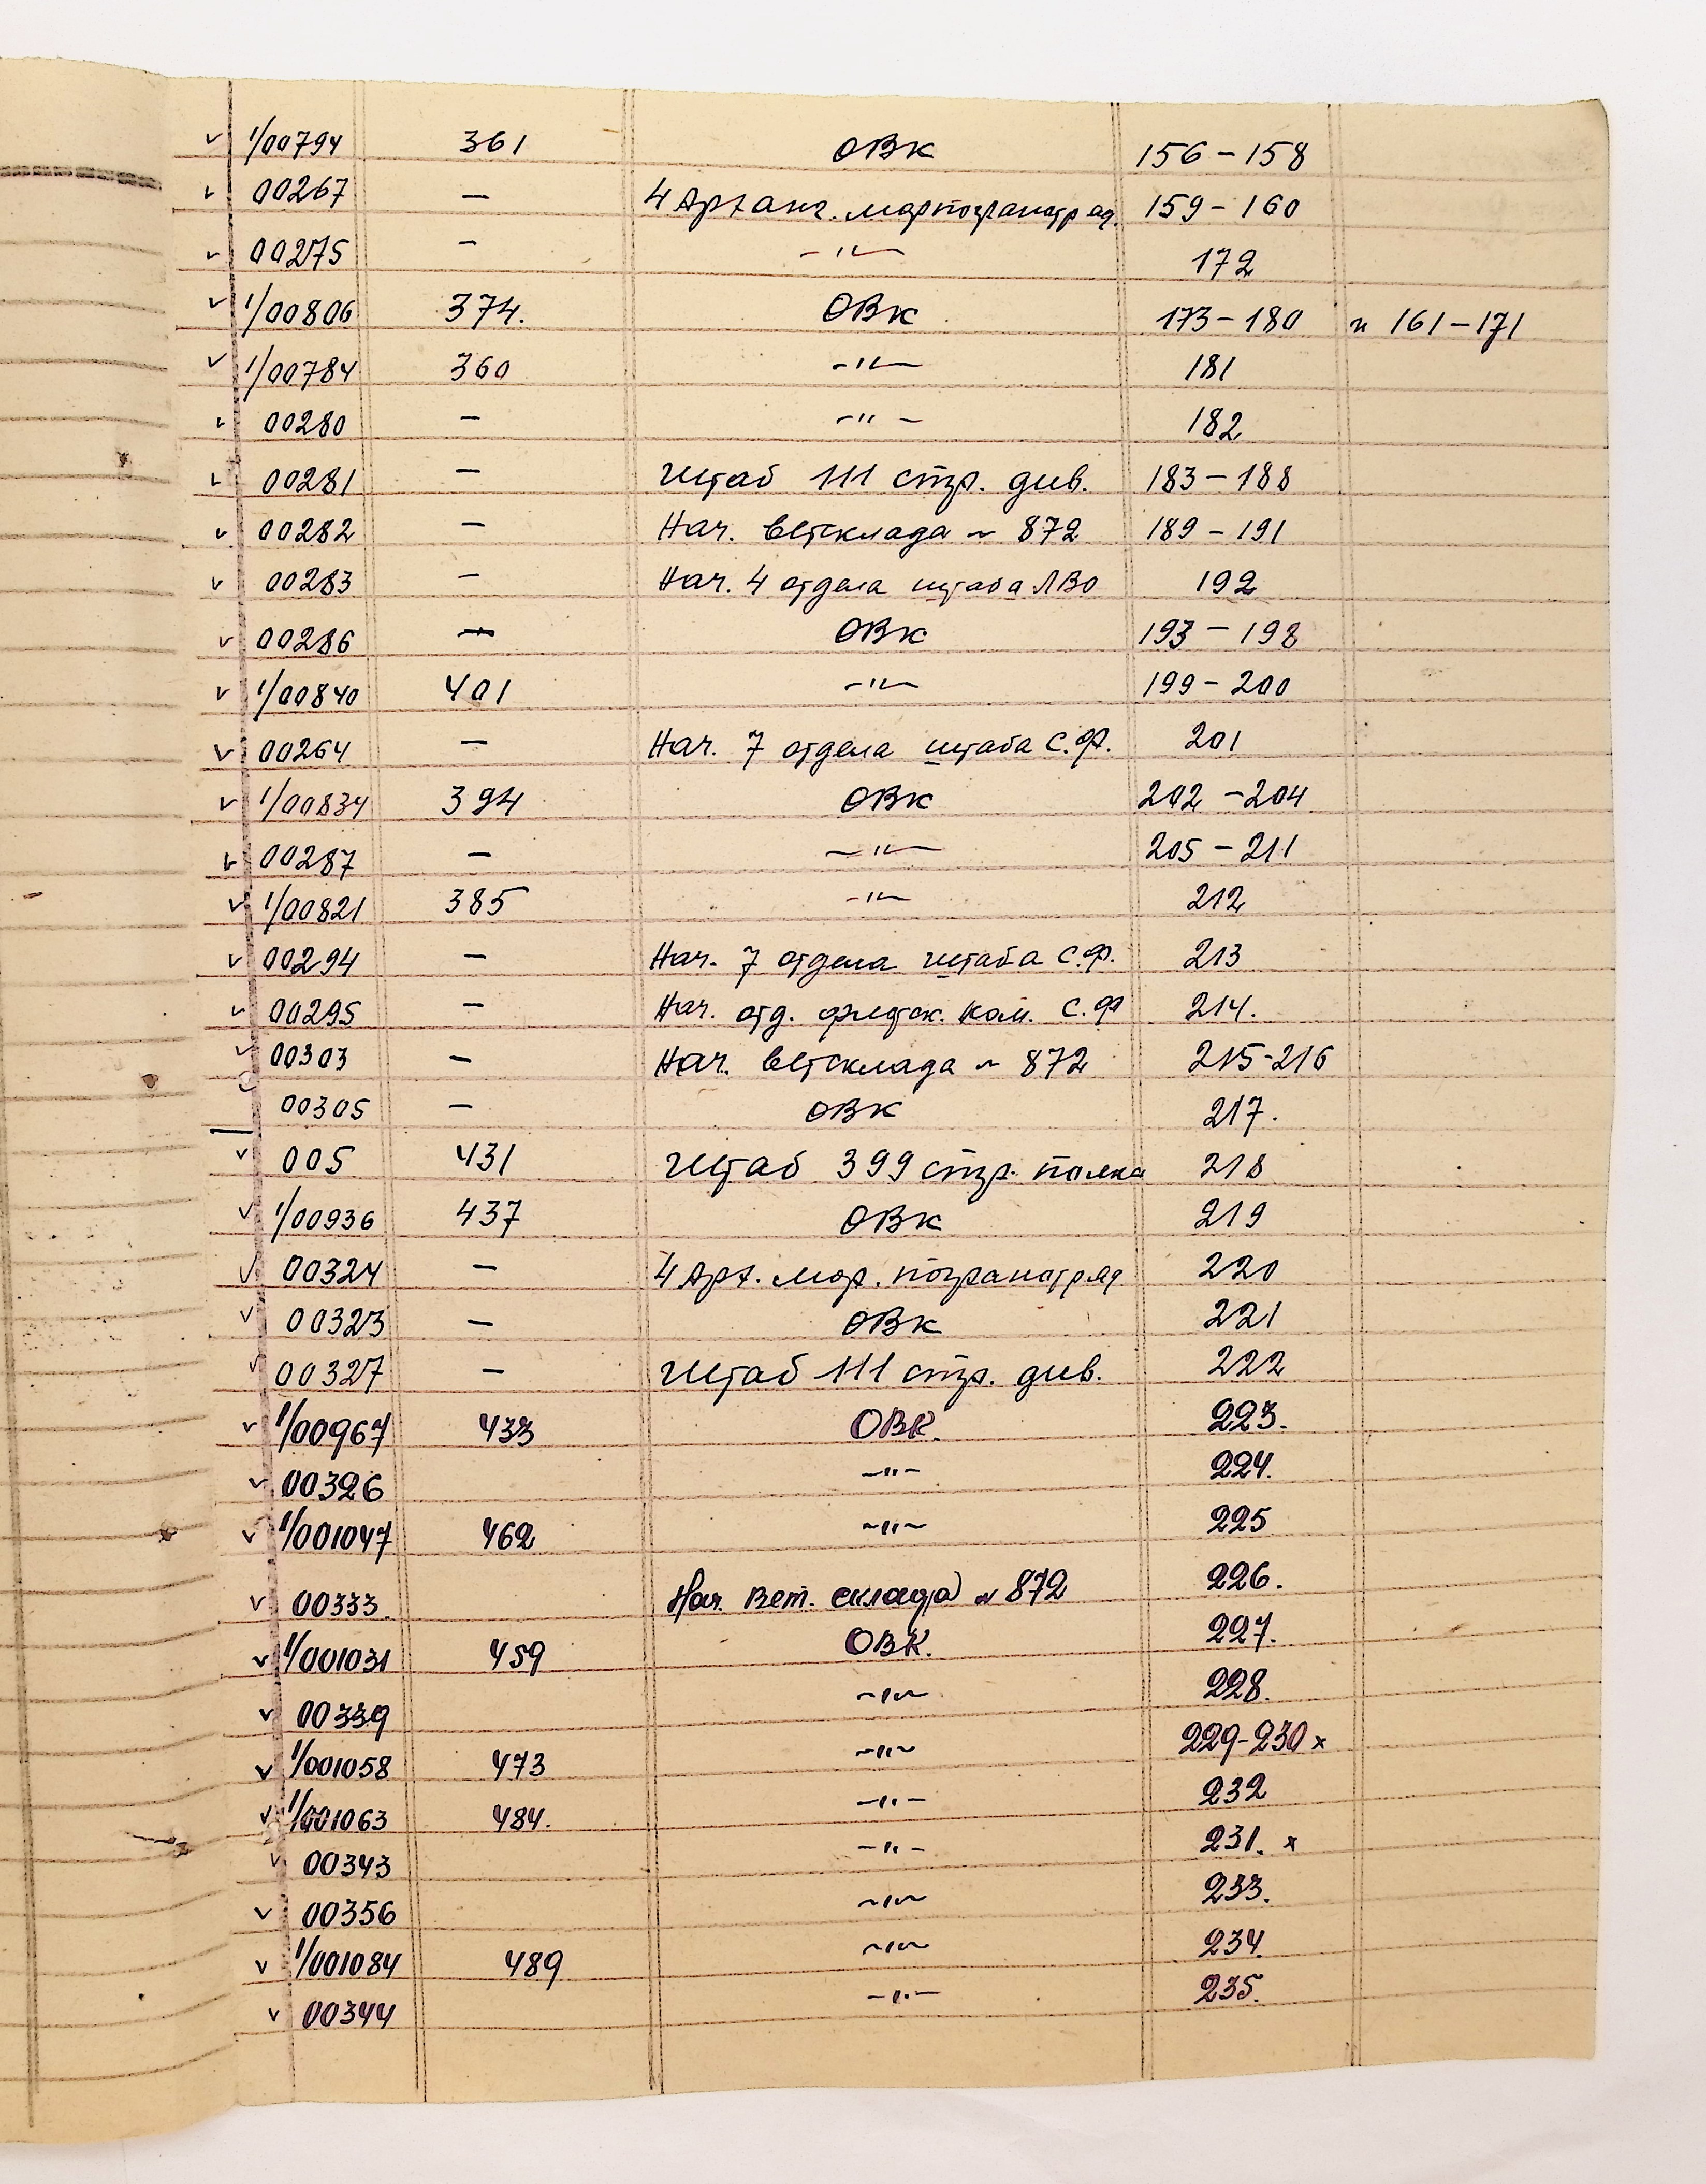 ✓ 1/00794 361 ОВК 156-158
✓ 00267 — 4 Арханг. морпогранотряд. 159-160
✓ 00275 — —"— 172
✓ 1/00806 374. ОВК 173-180 и 161-171
✓ 1/00784 360 —"— 181
✓ 00280 — —"— 182
✓ 00281 — Штаб 111 стр. див. 183-188
✓ 00282 — Нач. ветсклада № 872 189-191
✓ 00283 — Нач. 4 отдела штаба ЛВО 192
✓ 00286 — ОВК 193-198
✓ 1/00840 401 —"— 199-200
✓ 00264 — Нач. 7 отдела штаба С.Ф. 201
✓ 1/00834 394 ОВК 202-204
✓ 00287 — —"— 205-211
✓ 1/00821 385 —"— 212
✓ 00294 — Нач. 7 отдела штаба С.Ф. 213
✓ 00295 — Нач. отд. флотск. ком. С.Ф 214.
✓ 00303 — Нач. ветсклада № 872 215-216
00305 — ОВК 217.
✓ 005 431 Штаб 399 стр. полка 218
✓ 1/00936 437 ОВК 219
✓ 00324 — 4 Арх. мор. погранотряд 220
✓ 00323 — ОВК 221
✓ 00327 — Штаб 111 стр. див. 222
✓ 1/00967 433 ОВК. 223.
✓ 00326 —"— 224.
✓ 1/001047 462 —"— 225
✓ 00333. Нач. Вет. склада № 872 226.
✓ 1/001031 459 ОВК. 227.
✓ 00339 —"— 228.
✓ 1/001058 473 —"— 229-230 х
✓ 1/001063 484. —"— 232
✓ 00343 —"— 231. х
✓ 00356 —"— 233.
✓ 1/001084 489 —"— 234.
✓ 00344 —"— 235.